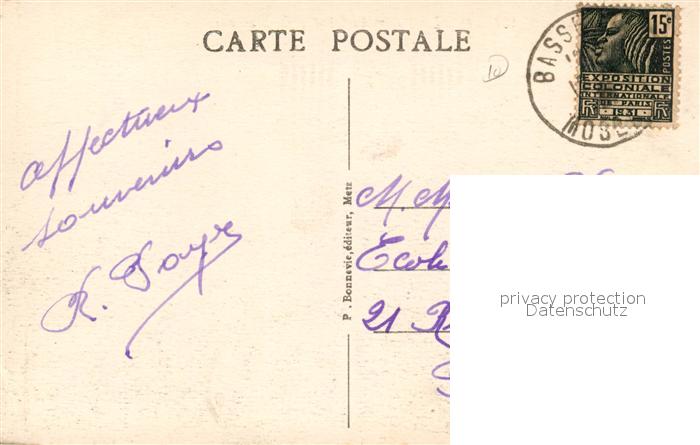 CARTE POSTALE
15c
POSTES
EXPOSITION
COLONIALE
INTERNATIONALE
DE PARIS
RF 1931 RF
BASSE
MOSEL
10
Affectueux
souvenirs
R.
P. Bonnevie, éditeur, Metz
M. M
Ecole
21 R
privacy protection
Datenschutz